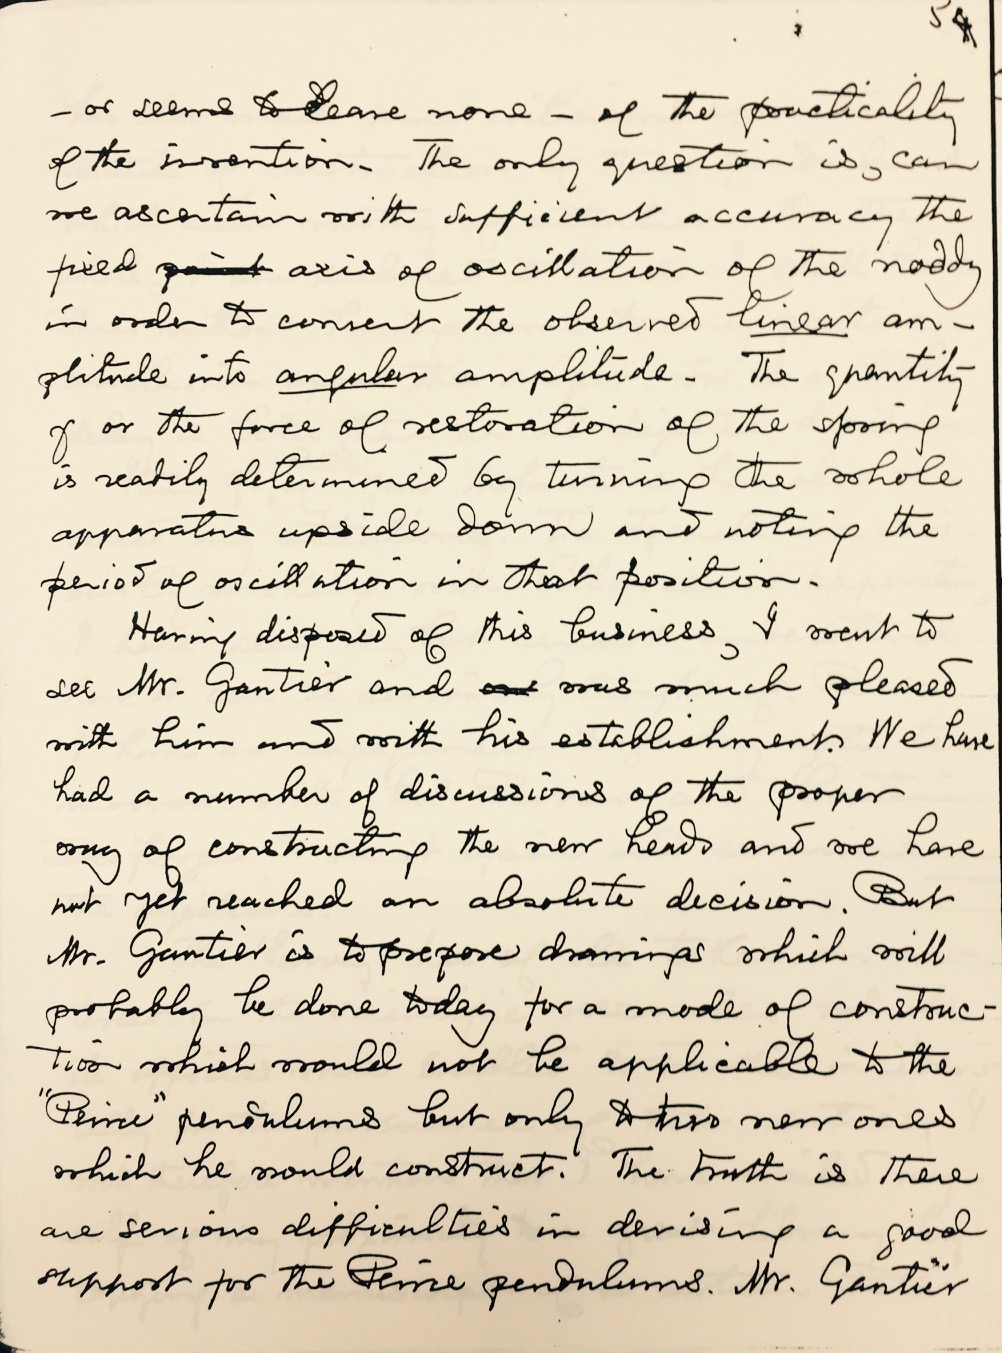 54
– or seems to leave none – of the practicality
of the invention. The only question is, can
we ascertain with sufficient accuracy the
fixed point axis of oscillation of the noddy
in order to convert the observed linear am-
plitude into angular amplitude. The quantity
γ or the force of restoration of the spring
is readily determined by turning the whole
apparatus upside down and noting the
period of oscillation in that position.
Having disposed of this business, I went to
see Mr. Gautier and was much pleased
with him and with his establishment. We have
had a number of discussions of the proper
way of constructing the new heads and we have
not yet reached an absolute decision. But
Mr. Gautier is to prepare drawings which will
probably be done today for a mode of construc-
tion which would not be applicable to the
"Peirce" pendulums but only to two new ones
which he would construct. The truth is there
are serious difficulties in devising a good
support for the Peirce pendulums. Mr. Gautier